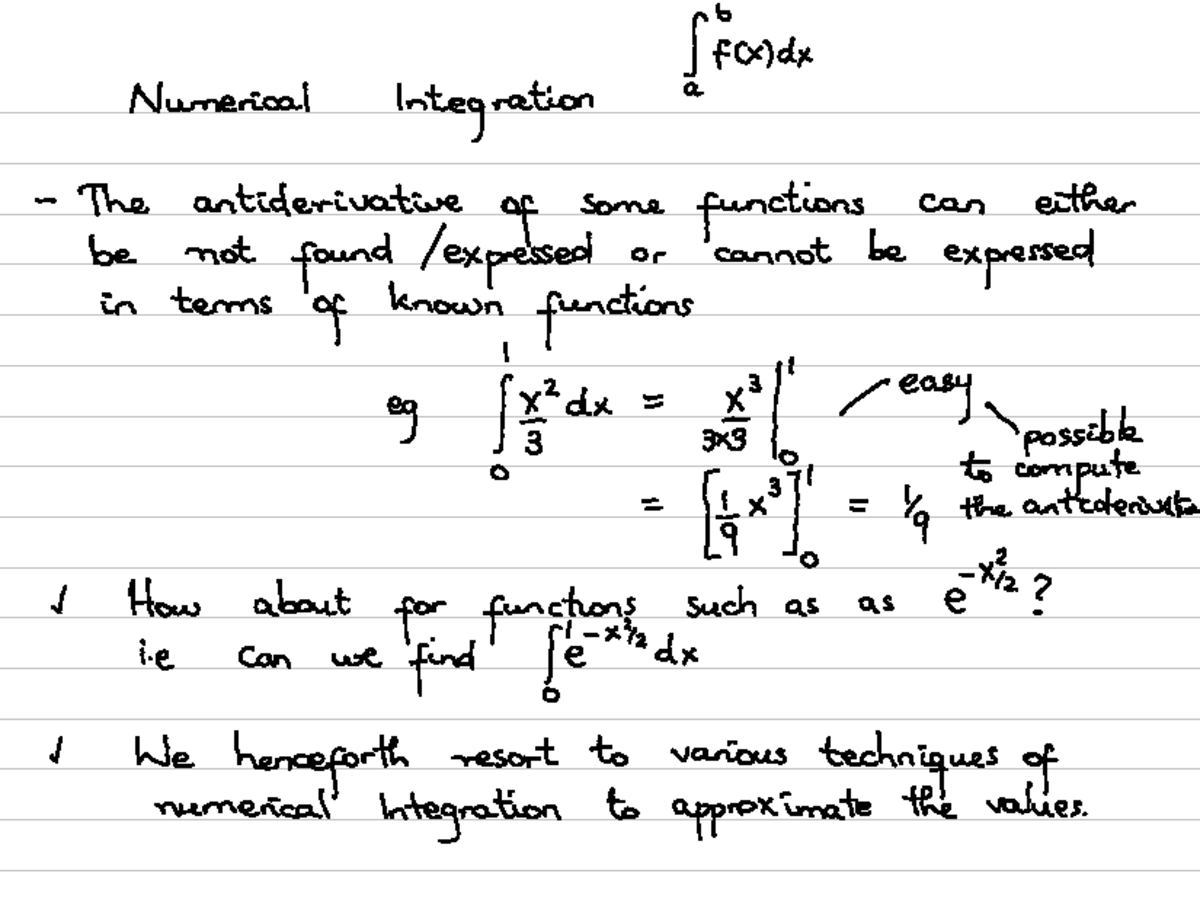 ∫_a^b f(x)dx
Numerical Integration
- The antiderivative of some functions can either
be not found /expressed or cannot be expressed
in terms of known functions
eg ∫_0^1 x²/3 dx = x³/3×3 |_0^1 easy
possible
to compute
= [1/9 x³]_0^1 = 1/9 the antiderivative
√ How about for functions such as as e^{-x²/2} ?
i.e can we find ∫_0^1 e^{-x²/2} dx
√ We henceforth resort to various techniques of
numerical Integration to approximate the values.